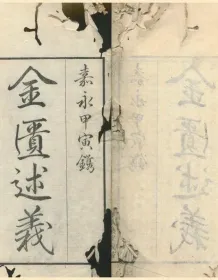 嘉永甲寅鐫
金匱述義